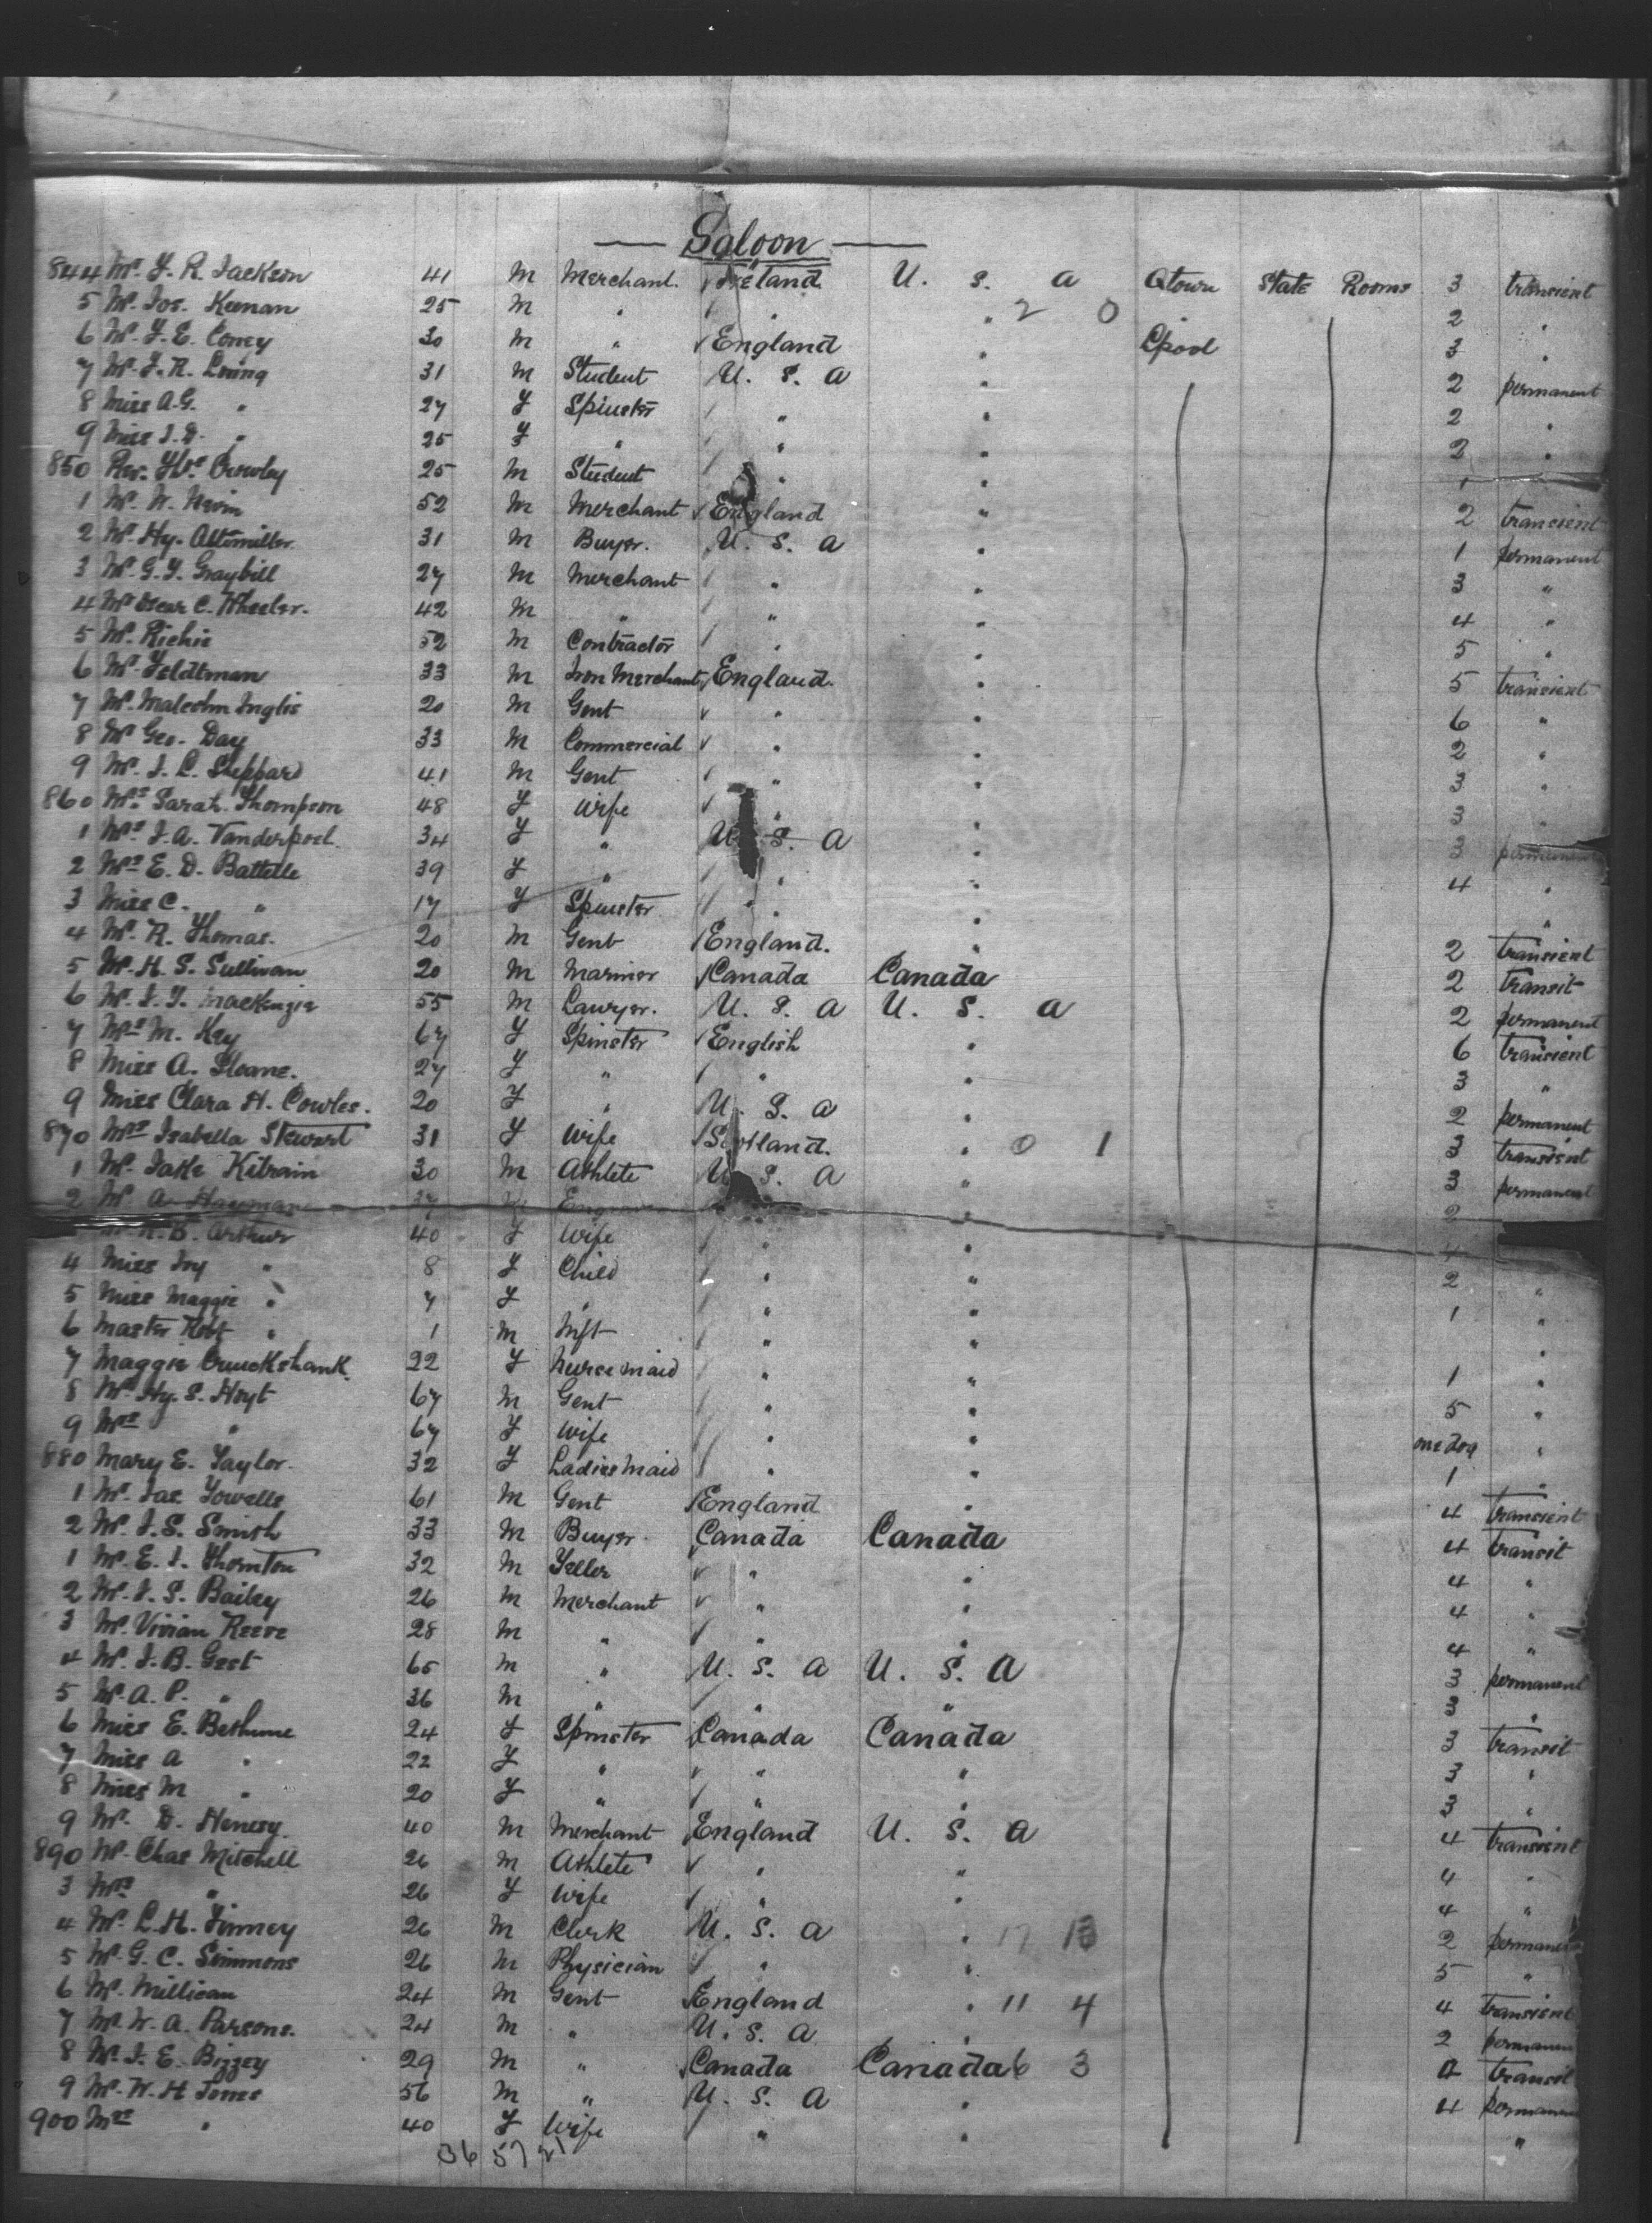 Saloon
844 Mr. J. R. Jackson 41 M Merchant Ireland U. S. A Qtown State Rooms 3 transient
5 Mr. Jos. Keenan 25 M " " " 2 0 2 "
6 Mr. J. E. Comey 30 M " England " Lpool 3 "
7 Mr. J. R. Loring 31 M Student U. S. A " 2 permanent
8 Miss A.G. " 27 F Spinster " " 2 "
9 Miss J.D. " 25 F " " " 2 "
850 Rev. Thos Crowley 25 M Student " " 1
1 Mr. W. Irwin 52 M Merchant England " 2 transient
2 Mr. Hy. Altemiller 31 M Buyer. U. S. A " 1 permanent
3 Mr. G. Y. Graybill 27 M Merchant " " 3 "
4 Mr Oscar C. Wheeler. 42 M " " " 4 "
5 Mr. Richie 52 M Contractor " " 5 "
6 Mr. Feldtman 33 M Iron Merchant England. " 5 transient
7 Mr. Malcolm Inglis 20 M Gent " " 6 "
8 Mr Geo. Day 33 M Commercial " " 2 "
9 Mr. J. L. Sheppard 41 M Gent " " 3 "
860 Mrs Sarah Thompson 48 F Wife " " 3 "
1 Mrs J. A. Vanderpoel. 34 F " U S. A " 3 permanent
2 Mrs E. D. Battelle 39 F " " " 4 "
3 Miss C. " 17 F Spinster " " "
4 Mr. R. Thomas. 20 M Gent England. " 2 transient
5 Mr. H. S. Sullivan 20 M Mariner Canada Canada 2 transit
6 Mr. J. T. Mackenzie 55 M Lawyer. U. S. A U. S. A 2 permanent
7 Mrs M. Key 67 F Spinster English " 6 transient
8 Miss A. Sloane. 27 F " " " 3 "
9 Miss Clara H. Cowles. 20 F " U. S. A " 2 permanent
870 Mrs Isabella Stewart 31 F Wife Scotland. " 0 1 3 transient
1 Mr. Jake Kilrain 30 M Athlete U S. A " 3 permanent
2 Mr A Hayman 37 M " 2
R. B. Arthur 40 F Wife " "
4 Miss Ivy " 8 F Child " " 2 "
5 Miss Maggie " 7 F " " " 1 "
6 Master Robt " 1 M Inft " " "
7 Maggie Cruickshank 22 F Nursemaid " " 1 "
8 Mr. Hy. S. Hoyt 67 M Gent " " 5 "
9 Mrs " 67 F Wife " " one dog "
880 Mary E. Taylor. 32 F Ladies Maid " " 1 "
1 Mr. Jas Yowells 61 M Gent England " 4 transient
2 Mr. J. S. Smith 33 M Buyer. Canada Canada 4 transit
1 Mr. E. J. Thornton 32 M Teller " " 4 "
2 Mr. J. S. Bailey 26 M Merchant " " 4 "
3 Mr. Vivian Reeve 28 M " " " 4 "
4 Mr. J. B. Gest 65 M " U. S. A U. S. A 3 permanent
5 Mr. A. P. " 36 M " " " 3 "
6 Miss E. Bethune 24 F Spinster Canada Canada 3 transit
7 Miss A " 22 F " " " 3 "
8 Miss M " 20 F " " " 3 "
9 Mr. D. Henery. 40 M Merchant England U. S. A 4 transient
890 Mr. Chas Mitchell 26 M Athlete " " 4 "
3 Mrs " 26 F Wife " " 4 "
4 Mr. L. H. Finney 26 M Clerk U. S. A " 17 13 2 permanent
5 Mr. G. C. Simmons 26 M Physician " " 5 "
6 Mr. Millican 24 M Gent England " 11 4 4 transient
7 Mr. W. A. Parsons. 24 M " U. S. A " 2 permanen
8 Mr. J. E. Bizzey 29 M " Canada Canada 6 3 4 transit
9 Mr. W. H Toms 56 M " U. S. A " 4 permanen
900 Mrs " 40 F Wife " " "
36 57 21